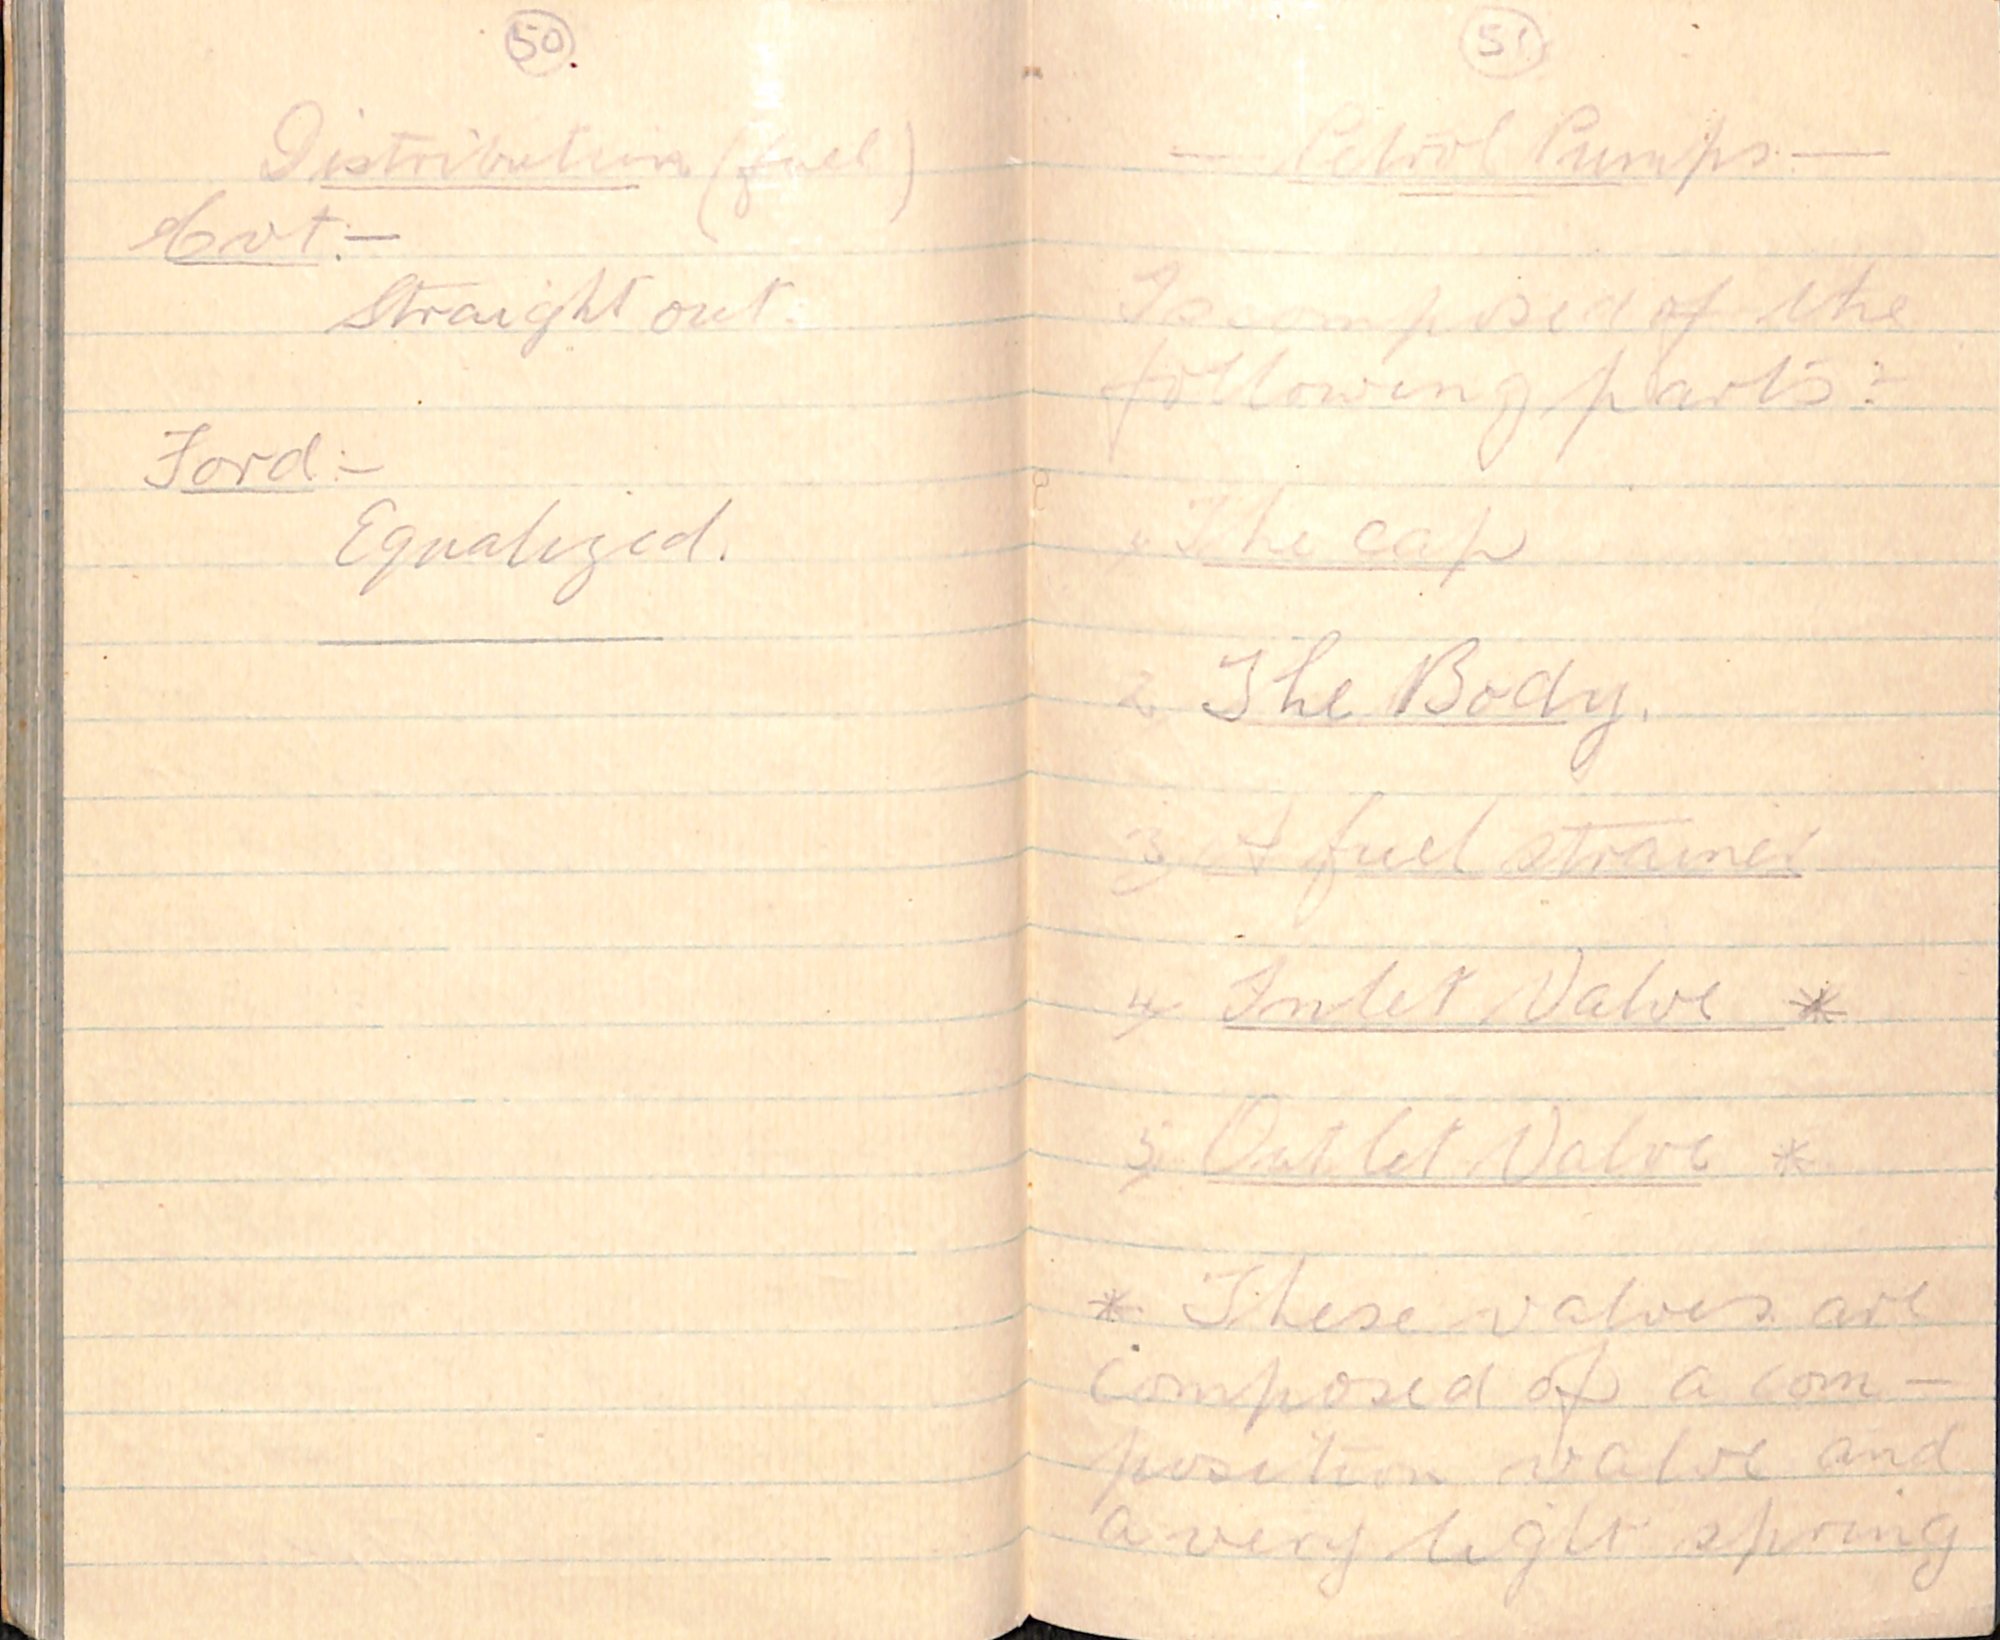 50
Distribution (fuel)
Cvt:-
Straight out.
Ford:-
Equalized.
51
— Petrol Pumps. —
Is composed of the
following parts:-
1, The cap
2, The Body.
3, A fuel strainer
4, Inlet Valve *
5, Outlet Valve *
* These valves are
composed of a com-
position valve and
a very light spring